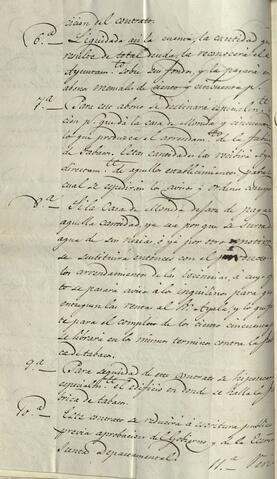 cicion del contrato.
6.a Liquidada asi la cuenta, la cantidad que
resulte de total deuda, la reconocerá el
Ayuntam.to sobre sus fondos, y la pagará en
abonos mensales de ciento y cincuenta p.s
7.a Para este abono se destinarán especialm.te
cien p.s que dá la casa de Moneda y cincuenta
lo que produce el arrendam.to de la fabrica
de Tabaco. Estas cantidades las recibirá
directam.te de aquellos establecimientos, para
cual se espedirán los avisos ú ordenes
8.a Si la Casa de Moneda dejase de pagar
aquella cantidad, ya sea por que se surta de
agua de sus ó ya por otro motivo
se substituirá entonces con el producto
los arrendamientos de las á cuyo
se pasará aviso á los inquilinos para que
entreguen las rentas al Sr. Ayala, y lo que
te para el completo de los ciento cincuenta
se librará en los mismos terminos contra la
ca de tabaco.
9.a Para seguridad de este contrato se hipoteca
especialm.te el edificio en donde se halla la fa
brica de tabaco.
10.a Este contrato se reducirá á escritura publica
previa aprobacion del Gobierno y de la Ecsma
Junta Departamental.
11.a